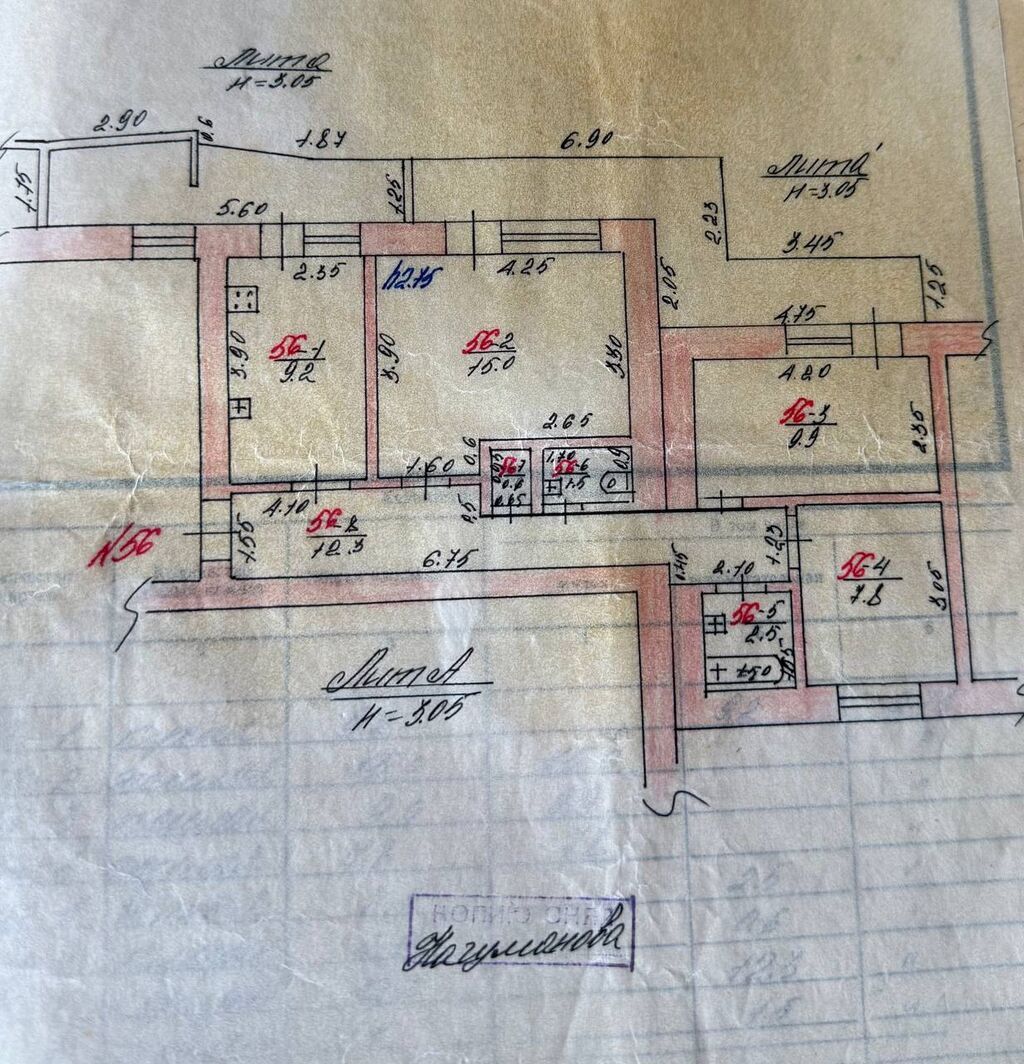 Лит а
H=3.05
2.90
0.6
1.87
6.90
Лит а'
H=3.05
1.15
1.25
5.60
2.23
3.45
1.25
2.35
h2.75
4.25
2.05
4.75
3.90
56-1
9.2
3.90
56-2
15.0
3.30
4.20
56-3
9.9
2.35
2.65
0.6
1.60
56-7
0.6
1.70
56-6
1.5
0.9
4.10
56-8
12.3
0.5
0.65
1.55
6.75
1.23
N56
0.45
2.10
56-4
7.8
3.05
56-5
2.5
1.50
Лит А
H=3.05
Нагуманова